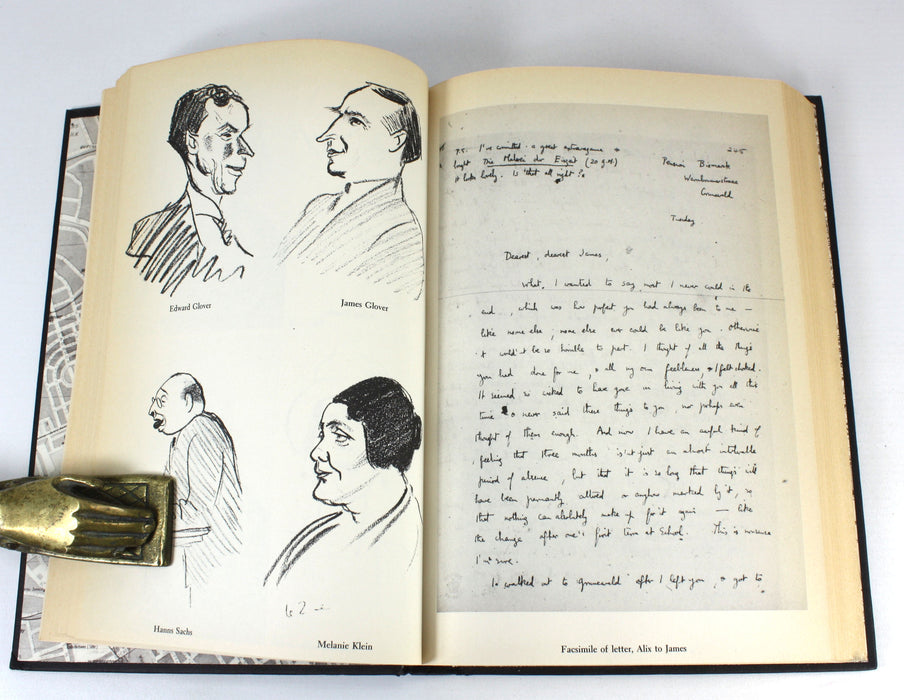 Edward Glover
James Glover
Hanns Sachs
Melanie Klein
P.S. I've committed a great extravagance &
bought Die Malerei der Eiszeit (20 G.M.)
It looks lovely. Is that all right?
245
Pension Bismarck
Grunewald
Tuesday
Dearest, dearest James,
What, I wanted to say most I never could in the
end.., which was how perfect you had always been to me —
like none else; none else ever could be like you. Otherwise
it wouldn't be so horrible to part. I thought of all the things
you had done for me, & all my own feebleness, & I felt choked.
It seemed so wicked to have gone on living with you all this
time & never said these things to you, nor perhaps even
thought of them enough. And now I have an awful kind of
feeling that three months isn't just an almost intolerable
period of absence, but that it is so long that things will
have been permanently altered or anyhow marked by it, so
that nothing can absolutely make up for it again — like
the change after one's first term at School. This is nonsense
I'm sure.
I walked out to Grunewald after I left you, & got to
Facsimile of letter, Alix to James